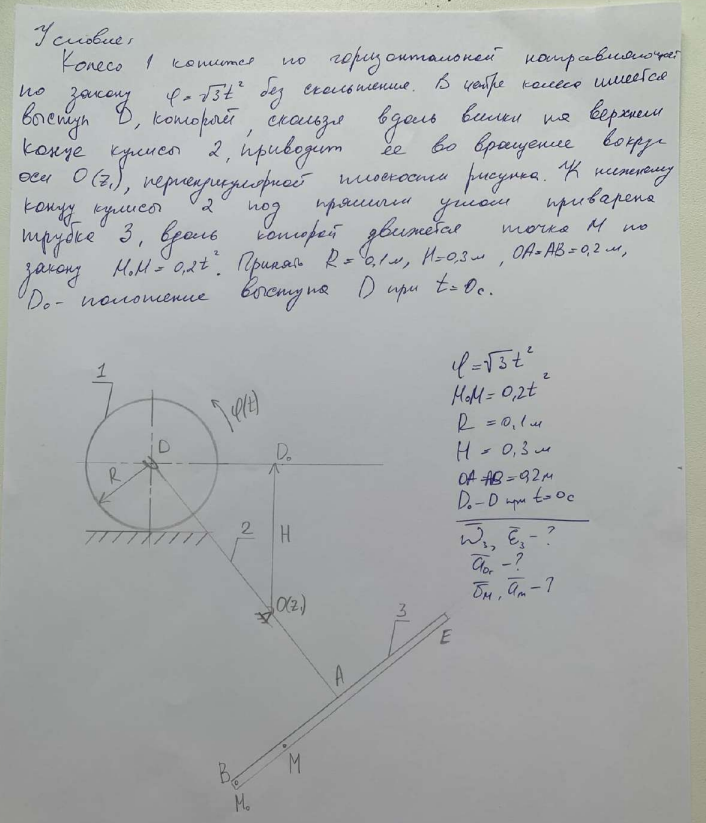 Условие,
Колесо 1 катится по горизонтальной направляющей
по закону φ=√3t² без скольжения. В центре колеса имеется
выступ D, который, скользя вдоль вилки на верхнем
конце кулисы 2, приводит ее во вращение вокруг
оси O(z₁), перпендикулярной плоскости рисунка. К нижнему
концу кулисы 2 под прямым углом приварена
трубка 3, вдоль которой движется точка М по
закону M₀M = 0,2t². Принять R = 0,1м, H=0,3м, OA=AB=0,2м,
D₀ - положение выступа D при t=0с.
φ=√3t²
M₀M = 0,2t²
R = 0,1м
H = 0,3м
OA=AB=0,2м
D₀-D при t=0с
ω̄₃, ε̄₃ - ?
- ?
ῡ_M, ā_M - ?
1
φ(t)
D
D₀
R
2
H
O(z₁)
3
A
E
M
B
M₀